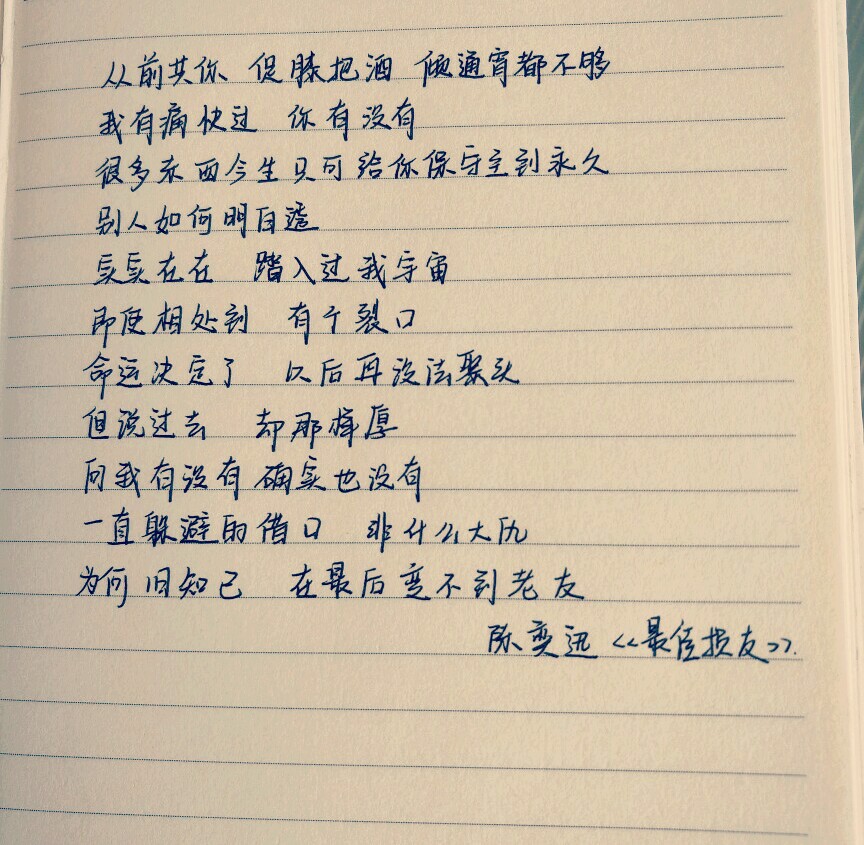 从前共你 促膝把酒 倾通宵都不够
我有痛快过 你有没有
很多东西今生只可给你保守至到永久
别人如何明白透
实实在在 踏入过我宇宙
即使相处到 有个裂口
命运决定了 以后再没法聚头
但说过去 却那样厚
问我有没有 确实也没有
一直躲避的借口 非什么大仇
为何旧知己 在最后变不到老友
陈奕迅 <<最佳损友>>.